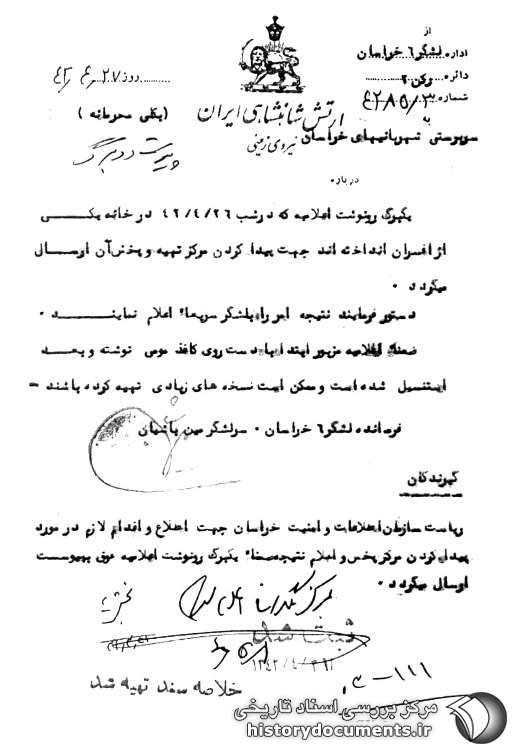 از
اداره لشگر ٦ خراسان
دائره رکن ٢
شماره
به
روز ٢٧
ارتش شاهنشاهی ایران
نیروی زمینی
( بکلی محرمانه )
پیوست دو برگ
سرپرستی شهربانیهای خراسان
درباره
یکبرگ رونوشت اعلامیه که در شب ٤٢/٤/٢٦ در خانه یکی
از افسران انداخته اند جهت پیدا کردن مرکز تهیه و پخش آن ارسال
میگردد ٠
دستور فرمایند نتیجه امر را بلشگر سریعا" اعلام نمایند ٠
ضمنا" اعلامیه مزبور ابتدا با دست روی کاغذ مومی نوشته و بعد
استنسیل شده است و ممکن است نسخه های زیادی تهیه کرده باشند -
فرمانده لشگر ٦ خراسان ٠ سرلشگر مین باشیان
گیرندگان
ریاست سازمان اطلاعات و امنیت خراسان جهت اطلاع و اقدام لازم در مورد
پیدا کردن مرکز پخش و اعلام نتیجه ضمنا" یکبرگ رونوشت اعلامیه فوق بپیوست
ارسال میگردد ٠
ثبت شد
١٣٤٢/٤/
خلاصه سند تهیه شد
مرکز بررسی اسناد تاریخی
historydocuments.ir